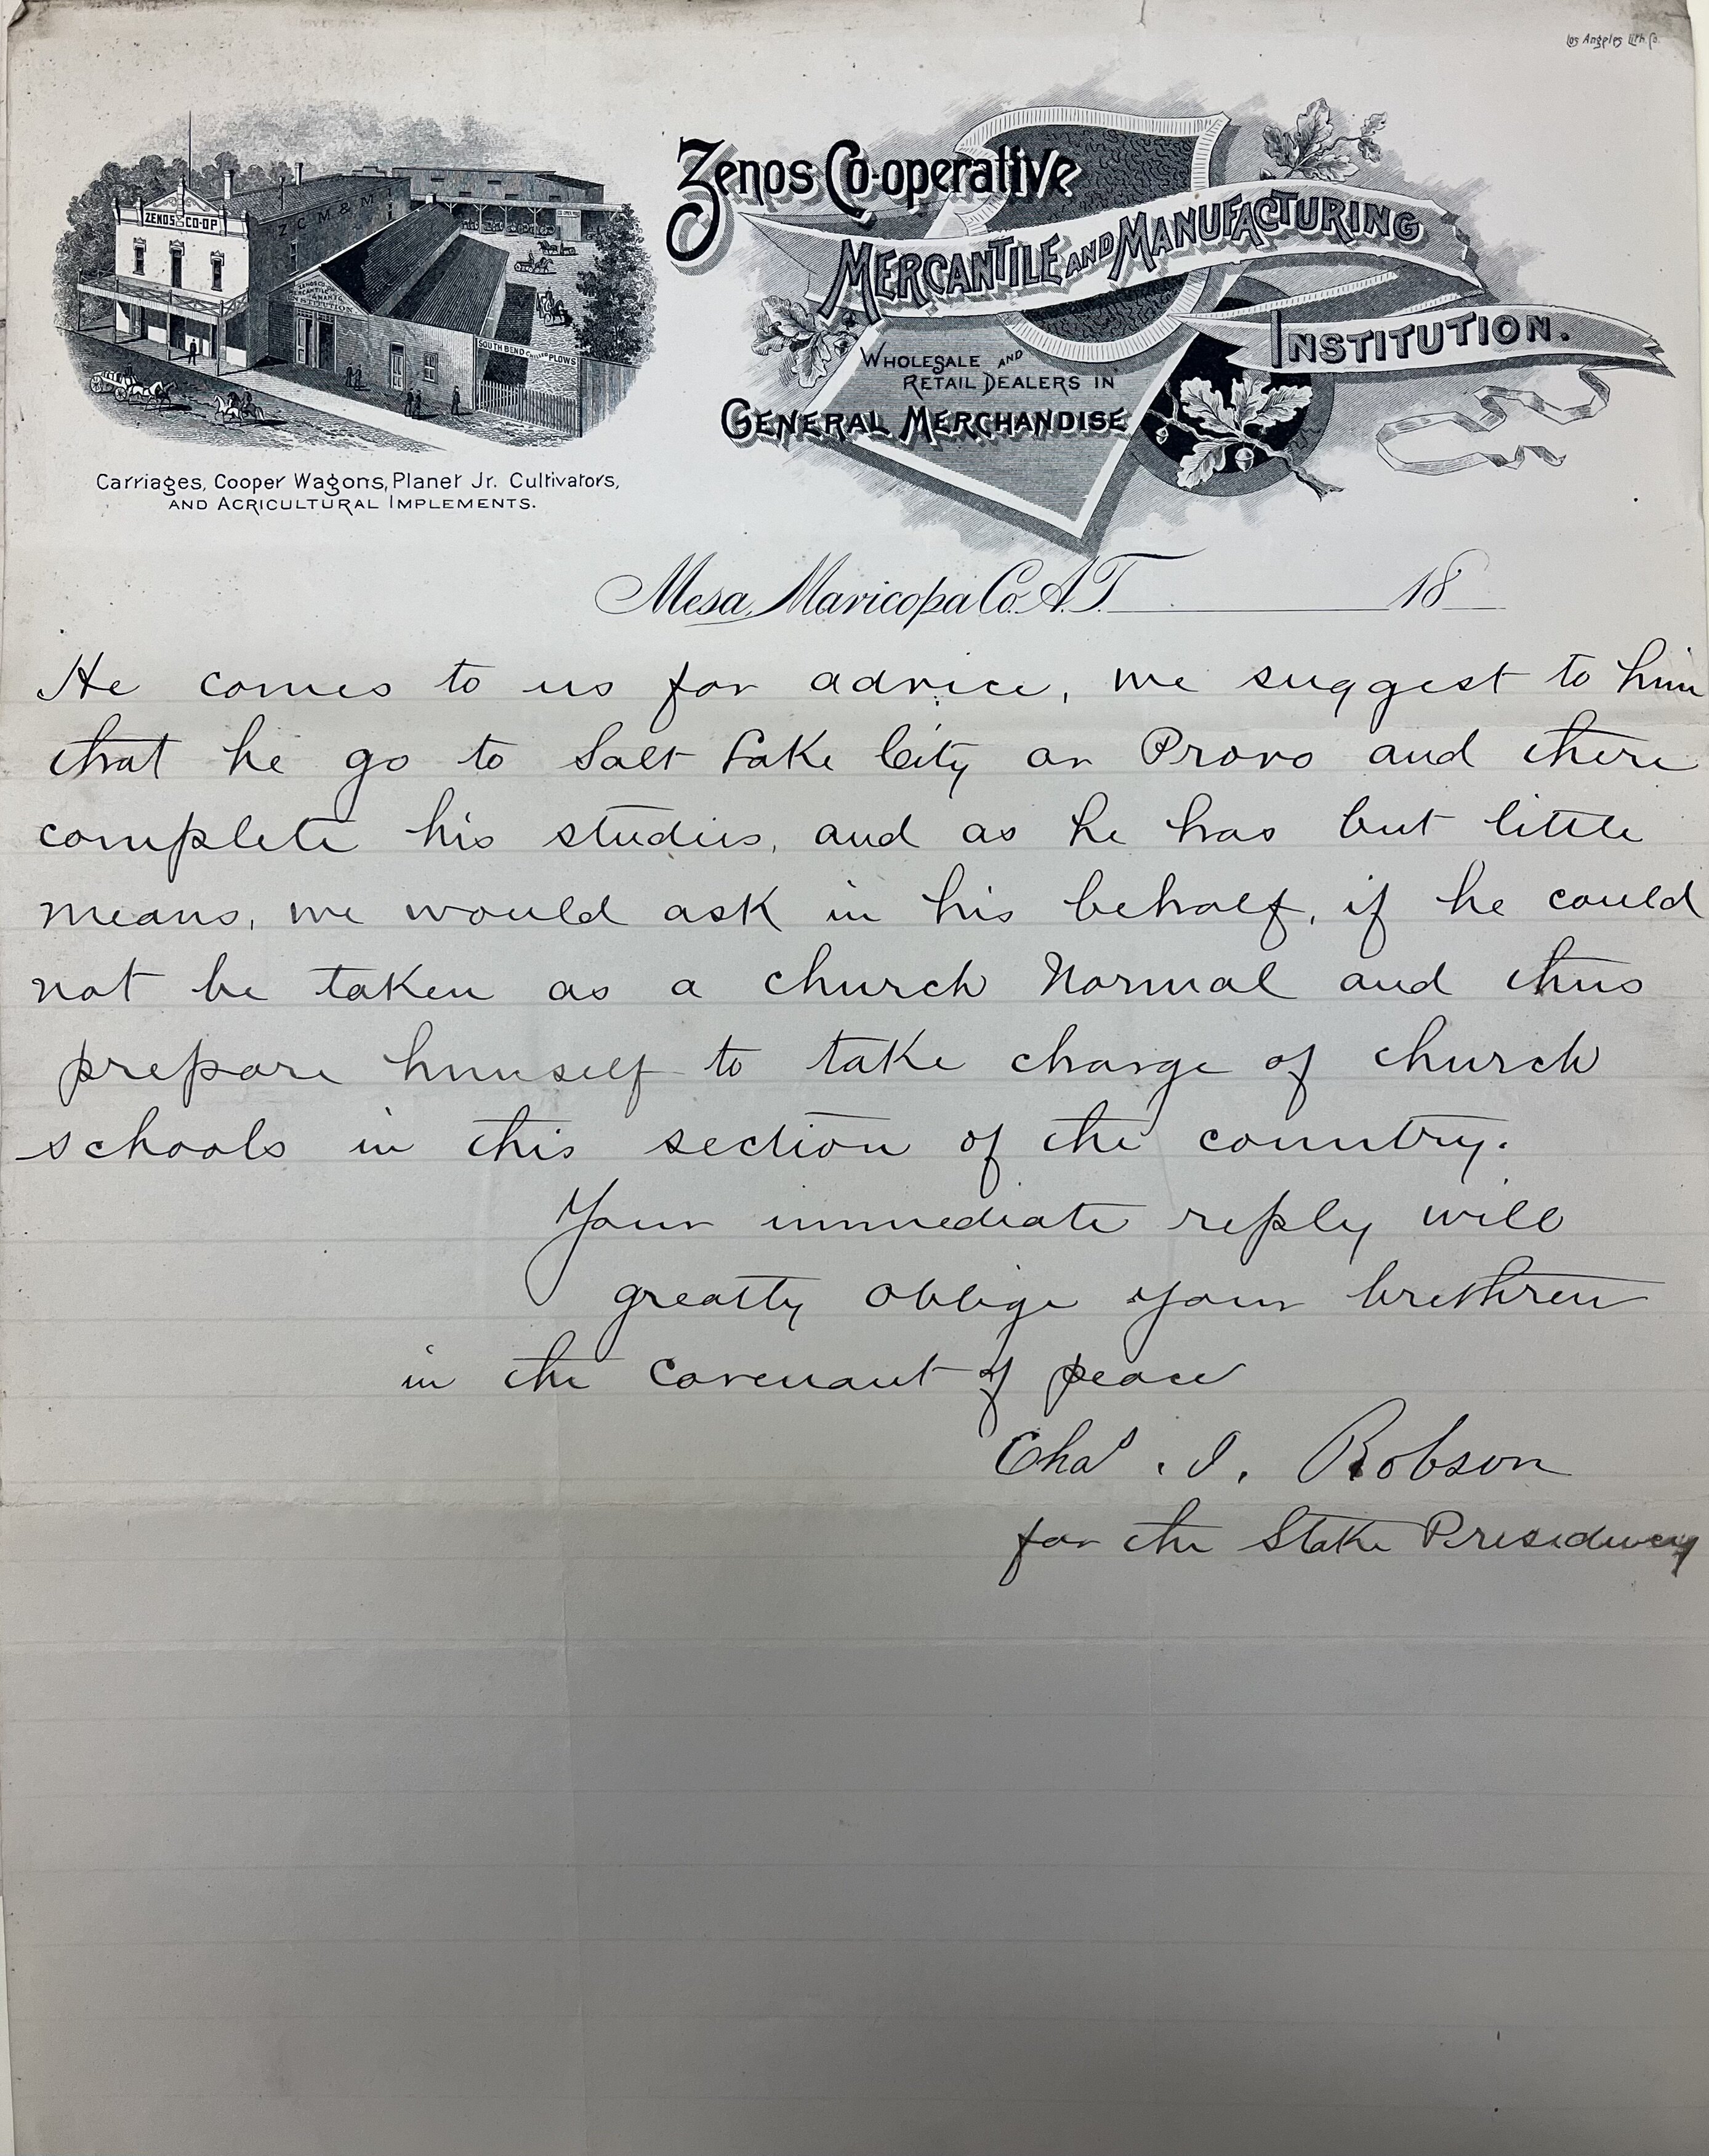 Los Angeles Lith. Co.
ZENOS CO-OP
Z. C. M. & M. I.
ZENOS CO
MERCANTILE
& MANFG
INSTITUTION
SOUTH BEND CHILLED PLOWS
Carriages, Cooper Wagons, Planet Jr. Cultivators,
AND AGRICULTURAL IMPLEMENTS.
Zenos Co-operative
MERCANTILE AND MANUFACTURING
INSTITUTION.
WHOLESALE AND
RETAIL DEALERS IN
GENERAL MERCHANDISE
Mesa, Maricopa Co. A.T. 18
He comes to us for advice, we suggest to him
that he go to Salt Lake City or Provo and there
complete his studies, and as he has but little
means, we would ask in his behalf, if he could
not be taken as a church Normal and thus
prepare himself to take charge of church
schools in this section of the country.
Your immediate reply will
greatly oblige your brethren
in the covenant of peace
Chas. I. Robson
for the Stake Presidency